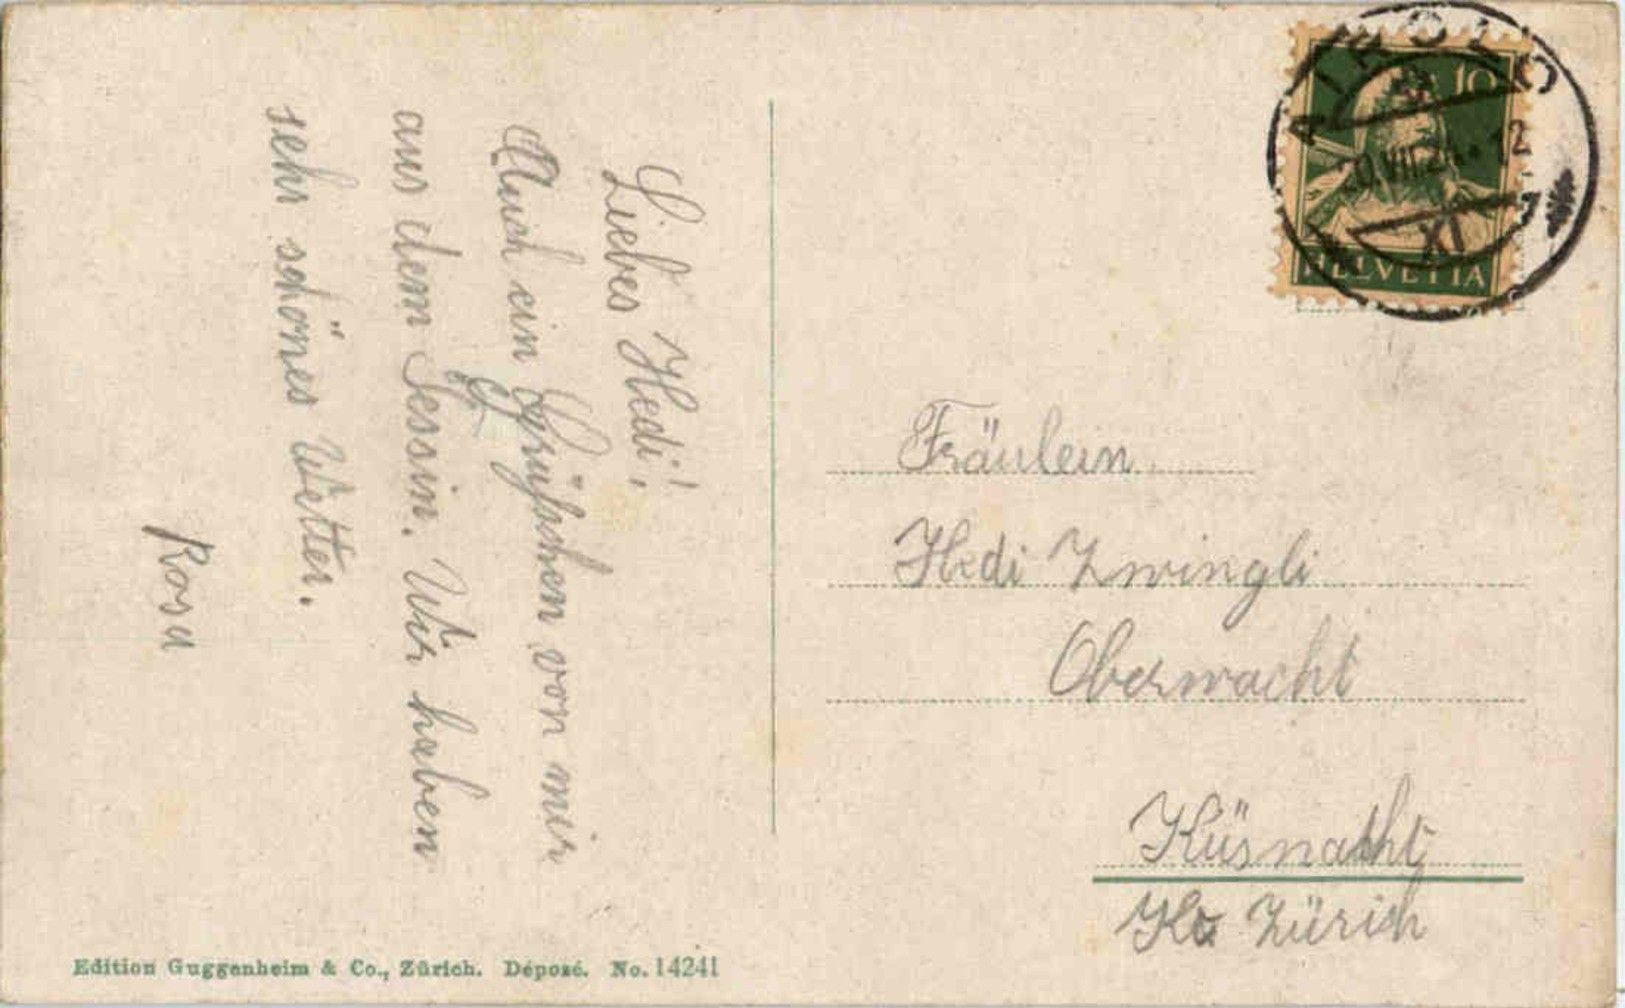 Liebes Hedi!
Auch ein Grüsschen von mir
aus dem Tessin. Wir haben
sehr schönes Wetter.
Rosa
AIROLO
VII.21. 12
XI
10
HELVETIA
Fräulein.
Hedi Zwingli
Oberwacht
Küsnatht
Kt Zürich
Edition Guggenheim & Co., Zürich. Déposé. No. 14241